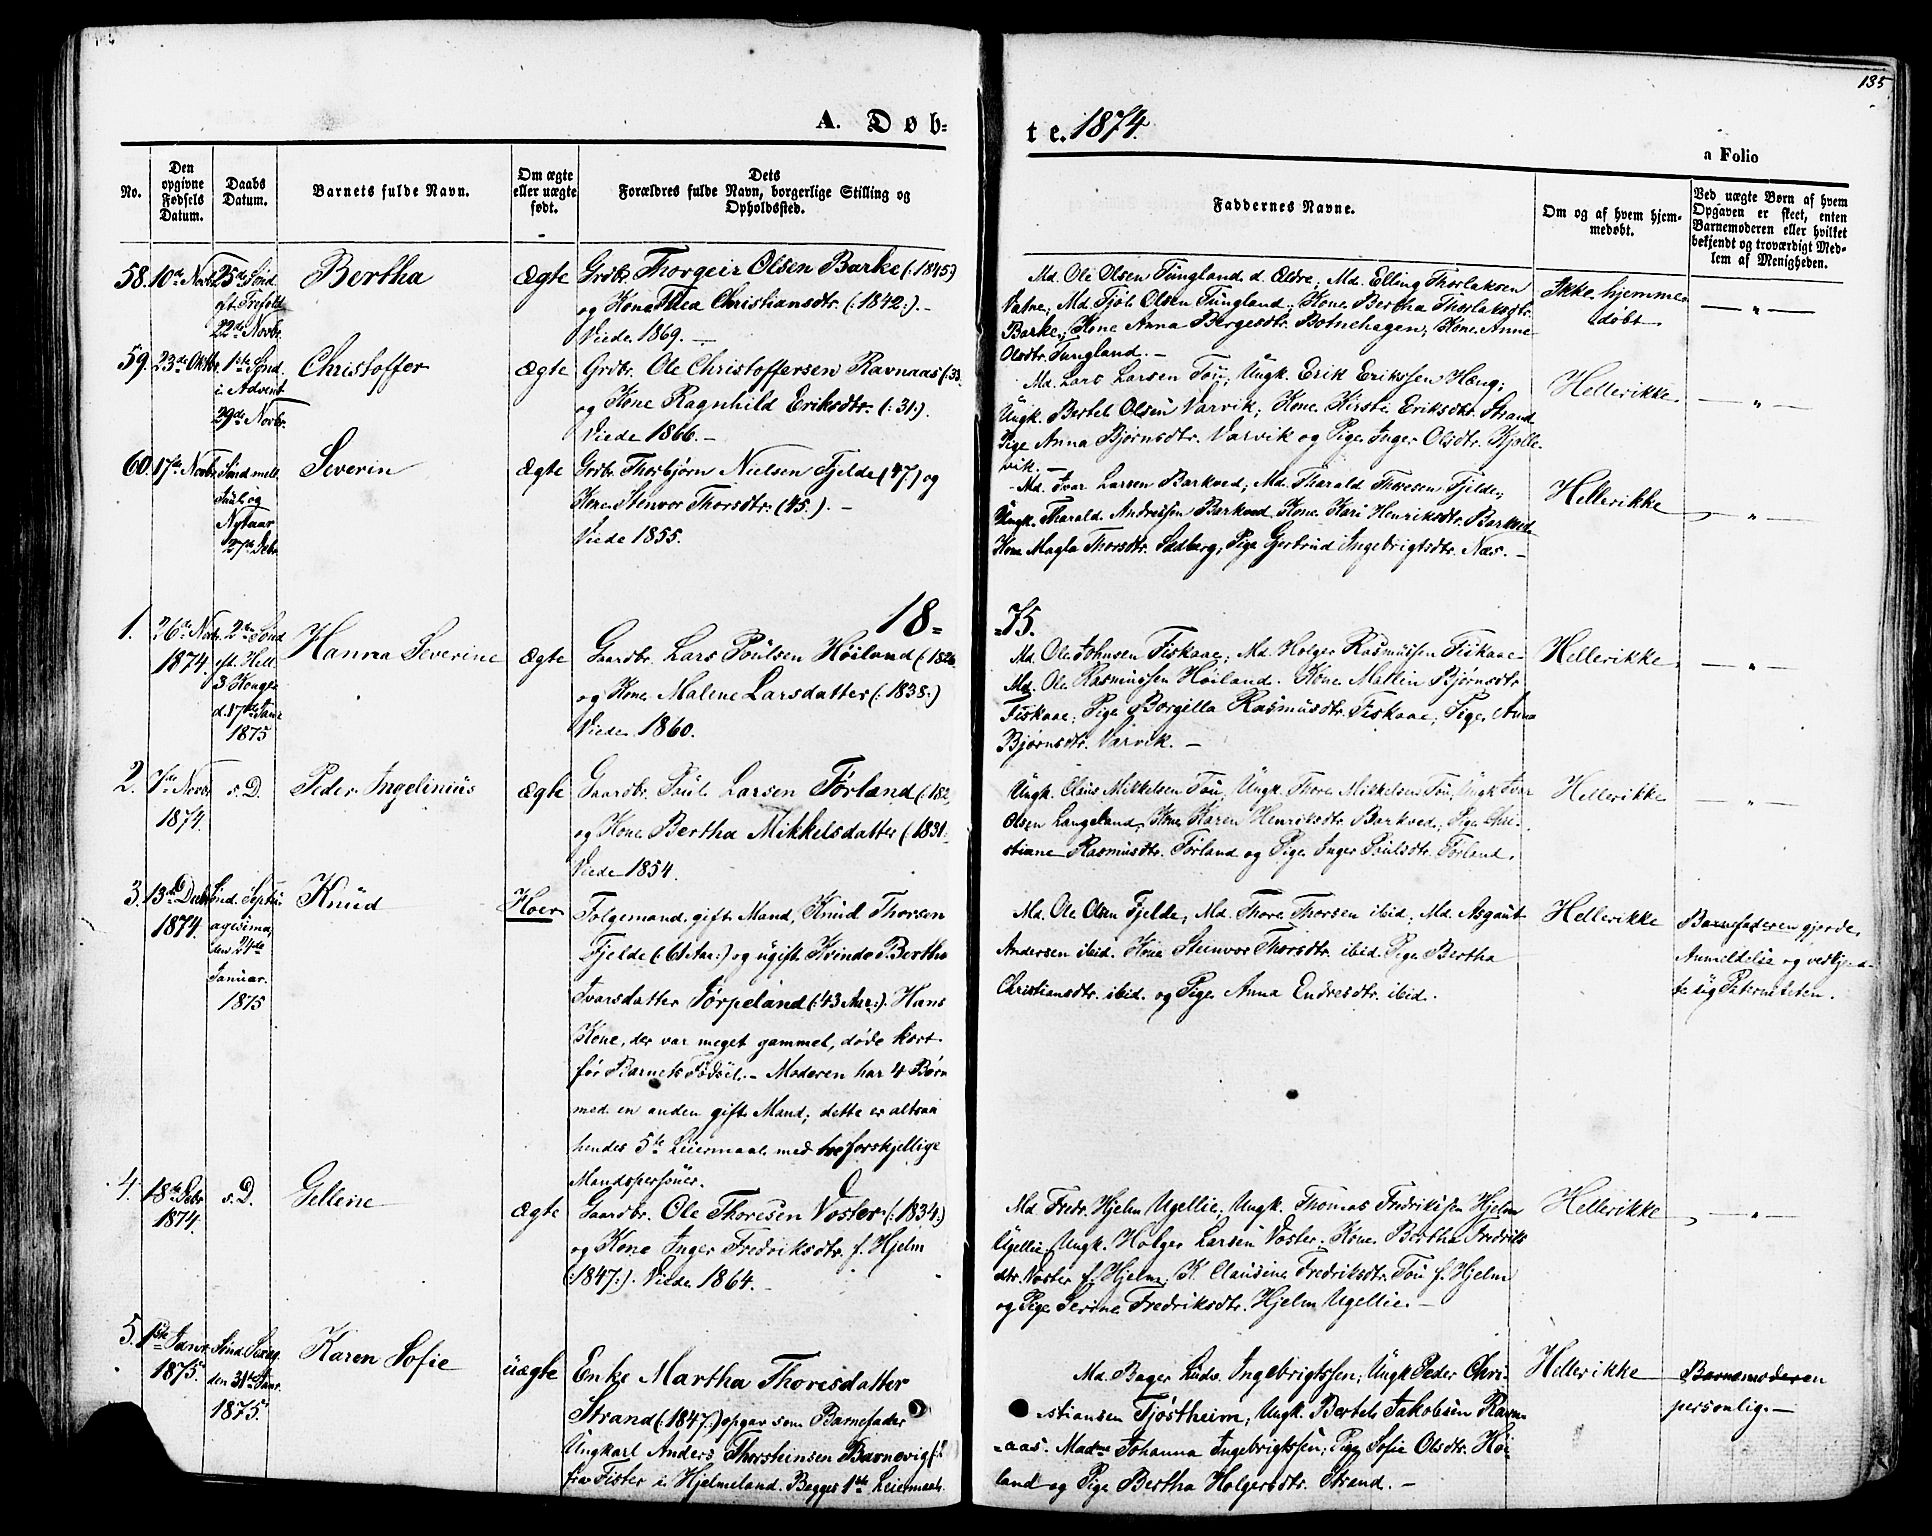 135
A. Døb-
te. 1874.
a Folio
No.
Den opgivne Fødsels Datum.
Daabs Datum.
Barnets fulde Navn.
Om ægte eller uægte født.
Dets Forældres fulde Navn, borgerlige Stilling og Opholdssted.
Faddernes Navne.
Om og af hvem hjemmedøbt.
Ved uægte Børn af hvem Opgaven er skeet, enten Barnemoderen eller hvilket bekjendt og troværdigt Medlem af Menigheden.
58.
10de Novbr
25de Sönd.
eft. Trefold.
22de Novbr.
Bertha
Ægte
Grdbr. Thorgeir Olsen Barke (:1845:)
og Kone Thea Christiansdtr. (:1842:). -
Viede 1869. -
Md. Ole Olsen Tungland d. Ældre; Md. Elling Thorlaksen
Vatne; Md. Tjöl Olsen Tungland; Kone Bertha Thorlaksdtr.
Barke; Kone Anna Bergesdtr. Botnehagen; Kone Anne
Olsdtr. Tungland. -
Ikke hjemme-
døbt
59.
23de Oktbr.
1ste Sönd.
i Advent
29de Novbr.
Christoffer
Ægte
Grdbr. Ole Christoffersen Ravnaas (:33
og Kone Ragnhild Eriksdtr. (:31:).
Viede 1866. -
Md. Lars Larsen Tou; Ungk. Erik Erikssen Hæng;
Ungk. Bertel Olsen Varvik; Kone Kirsti Eriksdtr. Strand
Pige Anna Bjørnsdtr. Varvik og Pige Inger Olsdtr. Kjølle-
vik. -
Hellerikke
60.
17de Novbr.
Sönd. mell.
Juul og
Nytaar
27de Debr.
Severin
Ægte
Grdbr. Thorbjørn Nielsen Fjelde (47.) og
Kone Stenvor Thorsdtr. (45.). -
Viede 1855.
Md. Ivar Larsen Barkved; Md. Tharald Thoresen Fjelde;
Ungk. Tharald Andressen Barkved Kone Kari Henriksdtr. Barkved
Kone Magla Thorsdtr. Sedberg; Pige Gertrud Ingebrigtsdtr. Næs. -
Hellerikke
18=
=75.
1.
26de Novbr.
1874.
2de Sönd
eft. Hell.
3 Konger
d. 17de Janr
1875
Hanna Severine
Ægte
Gaardbr. Lars Poulsen Høiland (:1826
og Kone Malene Larsdatter (:1838:)
Viede 1860.
Md. Ole Johnsen Fiskaae; Md. Holger Rasmussen Fiskaae
Md. Ole Rasmussen Høiland. Kone Mallin Bjørnsdtr.
Fiskaae; Pige Borgilla Rasmusdtr. Fiskaae; Pige Anna
Bjørnsdtr. Varvik. -
Hellerikke
2.
7de Novbr
1874.
s. D.
Peder Ingelinius
Ægte
Gaardbr. Poul Larsen Førland (:182
og Kone Bertha Mikkelsdatter (:1831:
Viede 1854.
Ungk. Claus Mikkelsen Tou; Ungk. Thore Mikkelsen Tou; Ungk. Ivar
Olsen Langeland; Kone Karen Henriksdtr. Barkved; Pige Chri-
stiane Rasmusdtr. Førland og Pige Inger Poulsdtr. Førland.
Hellerikke
3.
13de Debr
1874.
Sönd. Septu-
agesima,
den 24de
Januar.
1875
Knud
Hoer
Folgemand, gift Mand, Knud Thorsen
Fjelde (:61 Aar:) og ugift Kvinde Bertha
Ivarsdatter Jørpeland (:43 Aar:). Hans
Kone, der var meget gammel, døde kort
før Barnets Fødsel. - Moderen har 4 Børn
med en anden gift Mand; dette er altsaa
hendes 5te Leiermaal med to forskjellige
Mandspersoner.
Md. Ole Olsen Fjelde; Md. Thore Thorsen ibid; Md. Asgaut
Andersen ibid. Kone Steinvor Thorsdtr. ibid. Pige Bertha
Christiansdtr. ibid. og Pige Anna Endresdtr. ibid.
Hellerikke
Barnefaderen gjorde
Anmeldelse og vedkjend-
te sig Paterniteten.
4.
18de Debr
1874.
s. D.
Gellene
Ægte
Gaardbr. Ole Thoresen Voster (:1834:)
og Kone Inger Fredriksdtr. f. Hjelm
(:1847:). Viede 1864. -
Md. Fredr. Hjelm Ugellie; Ungk. Thomas Fredriksen Hjelm
Ugellie; Ungk. Holger Larsen Voster. Kone Bertha Fredriks
dtr. Voster f. Hjelm; K. Clausine Fredriksdtr. Tou f. Hjelm
og Pige Serine Fredriksdtr. Hjelm Ugellie. -
Hellerikke
5.
1ste Janr
1875.
Sönd. Sexag.
den 31te Janr.
1875.
Karen Sofie
uægte
Enke Martha Thoresdatter
Strand (:1847:) opgav som Barnefader
Ungkarl Anders Thorsteinsen Barnevig (:
fra Fister i Hjelmeland. Begges 1ste Leiermaal.
Md. Bager Ludv. Ingebrigtsen; Ungk. Peder Chri-
stiansen Tjøstheim; Ungk. Bertel Jakobsen Ravn-
aas. Madme Johanna Ingebrigtsen; Pige Sofie Olsdtr. Høi-
land og Pige Bertha Holgersdtr. Strand. -
Hellerikke
Barnemoderen
personlig. -